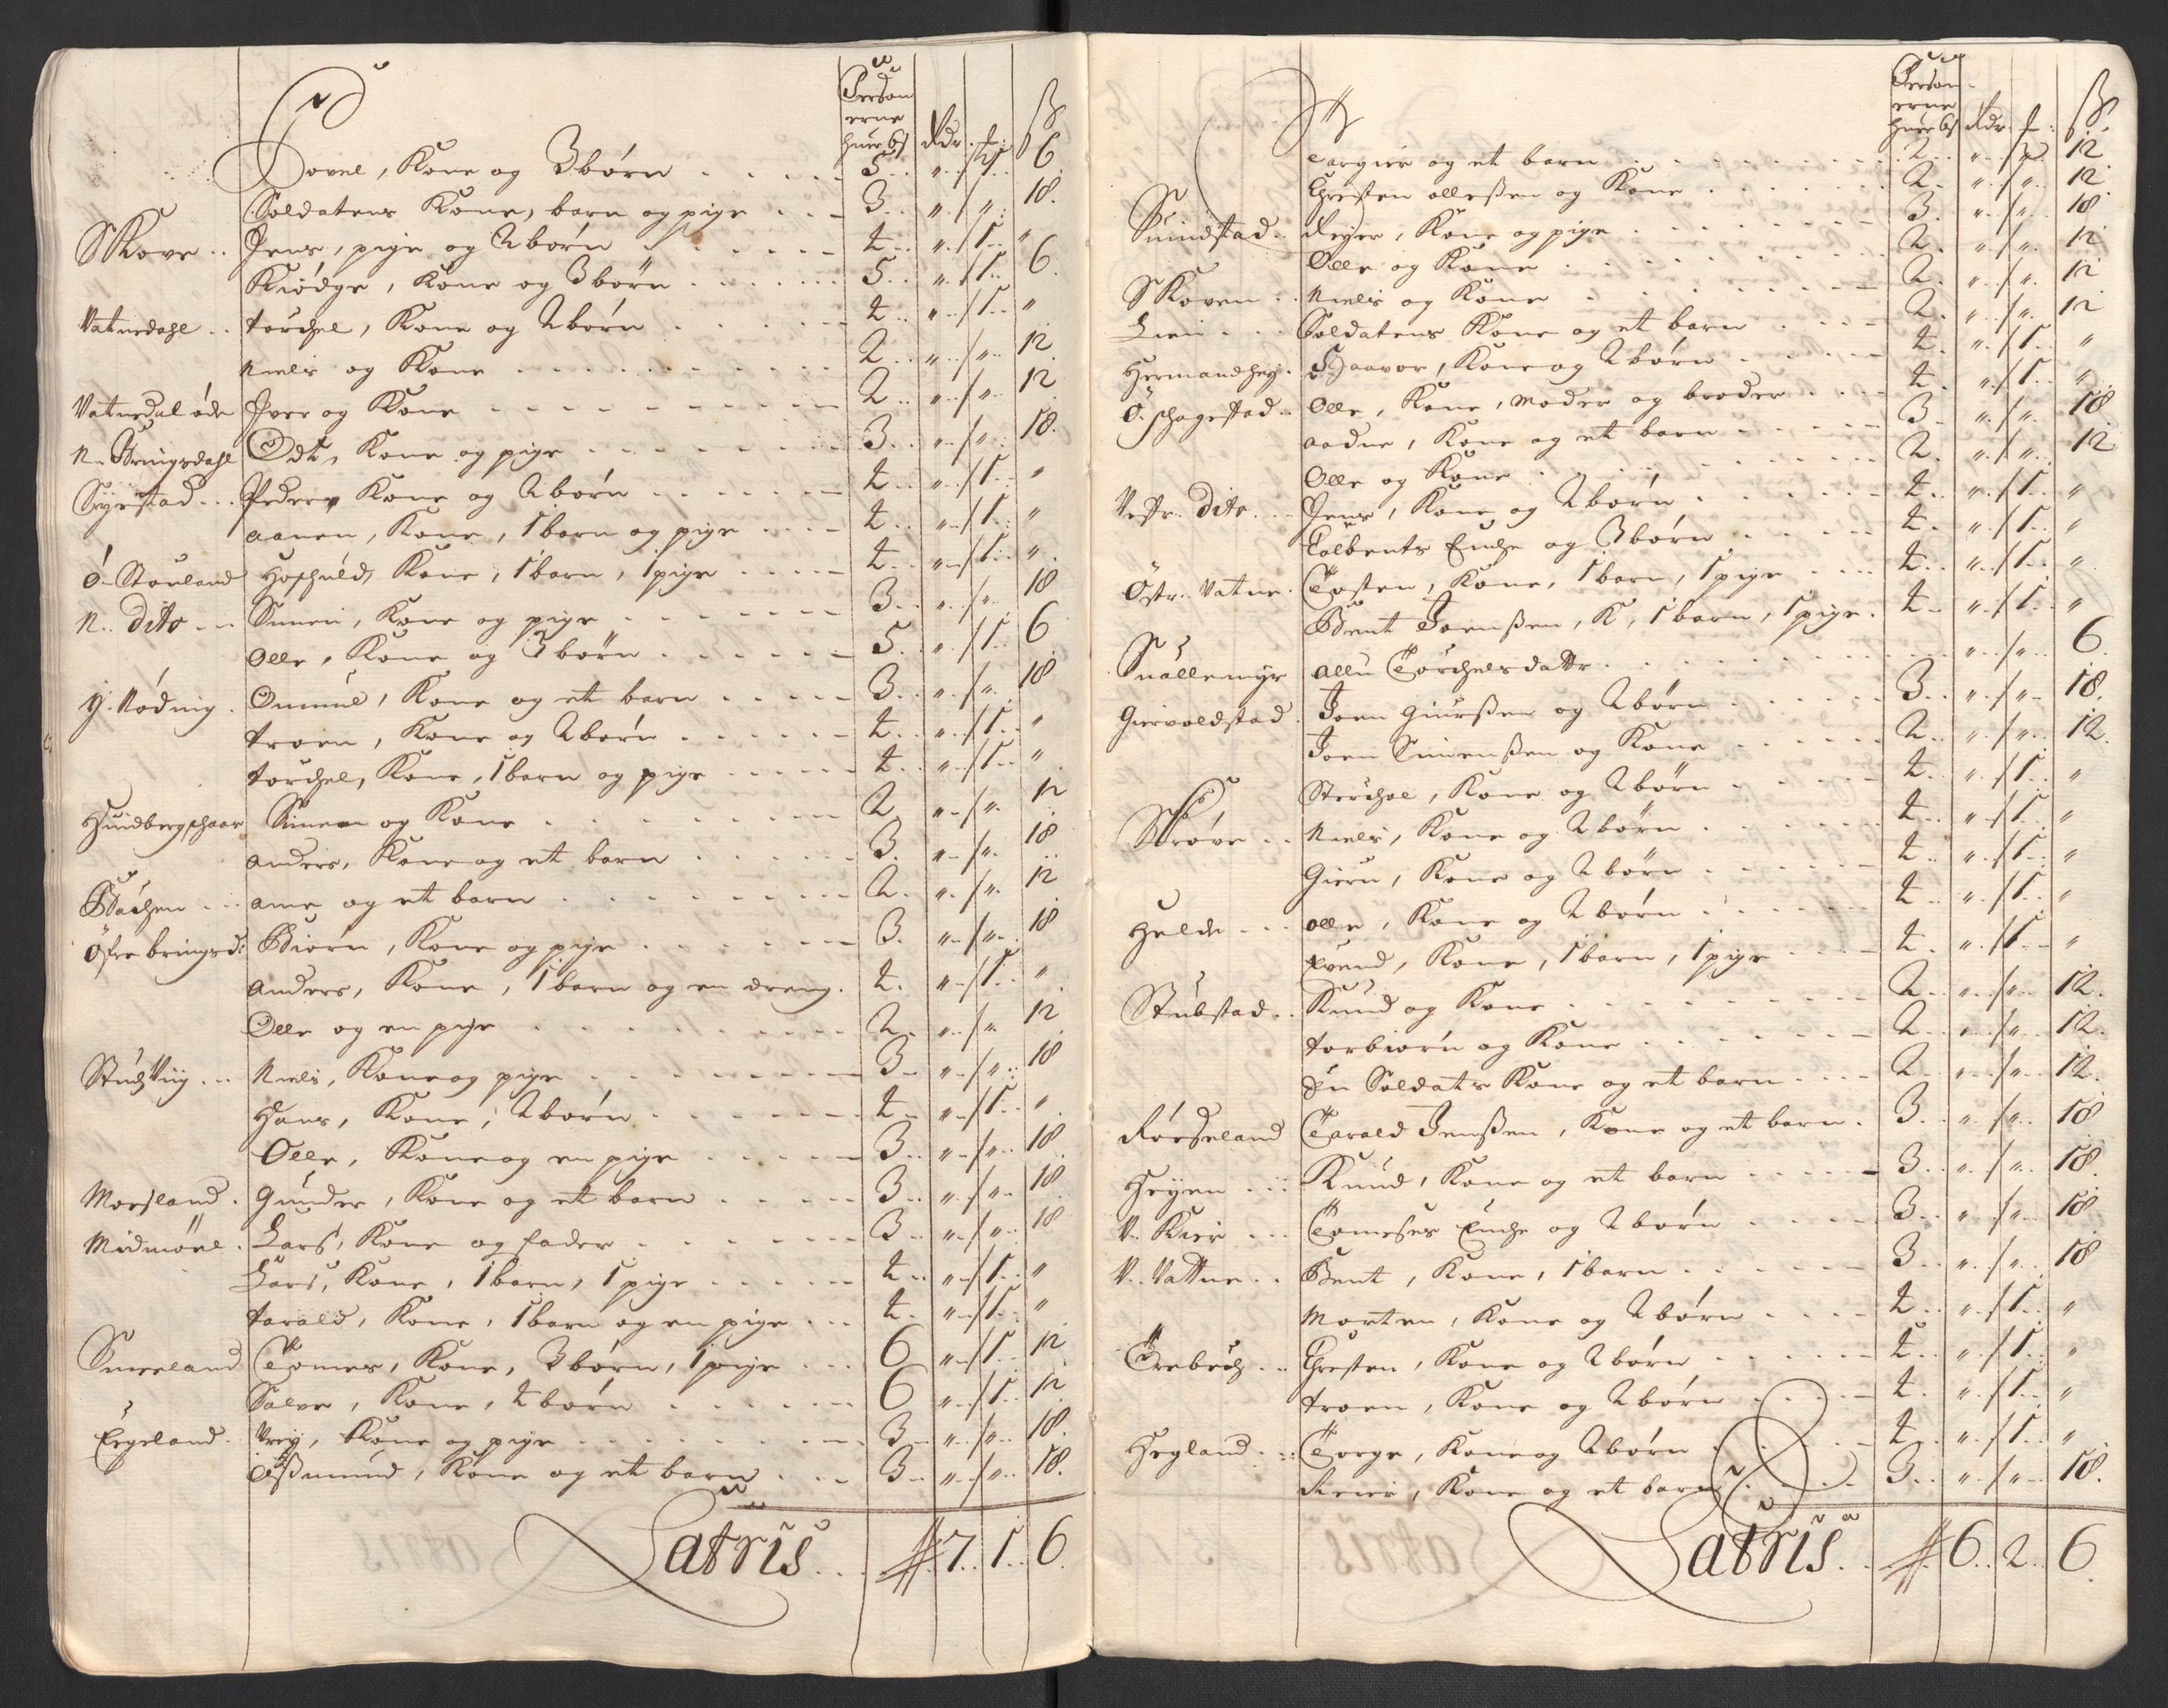 Person
erne
huer 6 ß Rdr. ß
Povel, Kone og 3 børn . . . 5 . . " . . 1 . . 6
Soldatens Kone, barn og pige . . . 3 . . " . . " . . 18.
SKove . . Jens, pige og 2 børn . . . 4 . . " . . 1 . . "
Kiødge, Kone og 3 børn . . . 5 . . " . . 1 . . 6
Vatnedahl . . Torchel, Kone og 2 børn . . . 4 . . " . . 1 . . "
Niels og Kone . . . 2 . . " . . " . . 12
Vatnedal øde Iver og Kone . . . 2 . . " . . " . . 12
N. Bringsdahl Odt, Kone og pige . . . 3 . . " . . " . . 18.
Syrstad . . . Peder, Kone og 2 børn . . . 4 . . " . . 1 . . "
Aanen, Kone, 1 barn og pige . . . 4 . . " . . 1 . . "
Ø. Stouland Hoschuld, Kone, 1 barn, 1 pige . . . 4 . . " . . 1 . . "
N. Dito . . . Simen, Kone og pige . . . 3 . . " . . " . . 18
Olle, Kone og 3 børn . . . 5 . . " . . 1 . . 6
Y. Nøding . Ommund, Kone og et barn . . . 3 . . " . . " . . 18
Troen, Kone og 2 børn . . . 4 . . " . . 1 . . "
Torchel, Kone, 1 barn og pige . . . 4 . . " . . 1 . . "
Hundbergschaar Simen og Kone . . . 2 . . " . . " . . 12
Anders, Kone og et barn . . . 3 . . " . . " . . 18
Bachen . . . Ane og et barn . . . 2 . . " . . " . . 12
Øfre bringsd: Biørn, Kone og pige . . . 3 . . " . . " . . 18
Anders, Kone, 1 barn og en dreng . 4 . . " . . 1 . . "
Olle og en pige . . . 2 . . " . . " . . 12
Stuchviig . . . Niels, Kone og pige . . . 3 . . " . . " . . 18
Hans, Kone, 2 børn . . . 4 . . " . . 1 . . "
Olle, Kone og en pige . . . 3 . . " . . " . . 18
Morsland . Gunder, Kone og et barn . . . 3 . . " . . " . . 18
Midmøel . Lars, Kone og fader . . . 3 . . " . . " . . 18
Lars, Kone, 1 barn, 1 pige . . . 4 . . " . . 1 . . "
Tarald, Kone, 1 barn og en pige . . . 4 . . " . . 1 . . "
Smeeland Tomes, Kone, 3 børn, 1 pige . . . 6 . . " . . 1 . . 12
Salve, Kone, 4 børn . . . 6 . . " . . 1 . . 12
Eegeland . Vrey, Kone og pige . . . 3 . . " . . " . . 18.
Aßmund, Kone og et barn . . . 3 . . " . . " . . 18.
Latris . . . 7 . . 1 . . 6
Person
erne
huer 6 ß Rdr. ß
Targier og et barn . . . 2 . . " . . " . . 12
Christen olleßen og Kone . . . 2 . . " . . " . . 12
Suindstad . . Reyer, Kone og pige . . . 3 . . " . . " . . 18
Olle og Kone . . . 2 . . " . . " . . 12
SKoven . . Niels og Kone . . . 2 . . " . . " . . 12
Lien . . . Soldatens Kone og et barn . . . 2 . . " . . " . . 12
Hermandshey . Haavor, Kone og 2 børn . . . 4 . . " . . 1 . . "
Ø. schagestad . . Olle, Kone, moder og broder . . . 4 . . " . . 1 . . "
Aadne, Kone og et barn . . . 3 . . " . . " . . 18
Olle og Kone . . . 2 . . " . . " . . 12
Vestr. Dito . . . Jens, Kone og 2 børn . . . 4 . . " . . 1 . . "
Colbents Enche og 3 børn . . . 4 . . " . . 1 . . "
Østr. Vatne . Tosten, Kone, 1 barn, 1 pige . . . 4 . . " . . 1 . . "
Bent Joenßen, K, 1 barn, 1 pige . 4 . . " . . 1 . . "
Snallemyr Allu Torchelsdattr . . . " . . " . . 6.
Giervoldstad . Joen Giurßen og 2 børn . . . 3 . . " . . " . . 18.
Joen Simenßen og Kone . . . 2 . . " . . " . . 12.
Sterchol, Kone og 2 børn . . . 4 . . " . . 1 . . "
Strøve . . Niels, Kone og 2 børn . . . 4 . . " . . 1 . . "
Gieru, Kone og 2 børn . . . 4 . . " . . 1 . . "
Helde . . . Olle, Kone og 2 børn . . . 4 . . " . . 1 . . "
Evend, Kone, 1 barn, 1 pige . . . 4 . . " . . 1 . . "
Stubstad . . Knud og Kone . . . 2 . . " . . " . . 12.
Torbiørn og Kone . . . 2 . . " . . " . . 12.
En Soldats Kone og et barn . . . 2 . . " . . " . . 12.
Rørseland Tarald Jenßen, Kone og et barn . 3 . . " . . " . . 18
Heyen . . . Knud, Kone og et barn . . . 3 . . " . . " . . 18.
V. Kier . . . Tomeses Enche og 2 børn . . . 3 . . " . . " . . 18
V. Vattne . . Bent, Kone, 1 barn . . . 3 . . " . . " . . 18
Morten, Kone og 2 børn . . . 4 . . " . . 1 . . "
Trebech . . Christen, Kone og 2 børn . . . 4 . . " . . 1 . . "
Troen, Kone og 2 børn . . . 4 . . " . . 1 . . "
Hegland . . . Torge, Kone og 2 børn . . . 4 . . " . . 1 . . "
Reier, Kone og et barn . . . 3 . . " . . " . . 18.
Latris . . 6 . . 2 . . 6